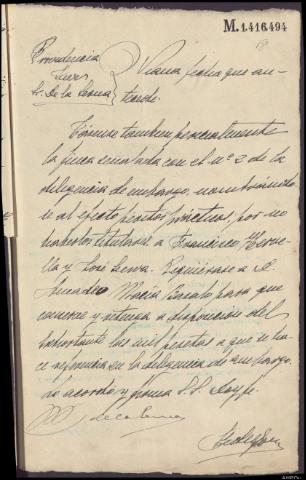 M.1.416.494
Providencia
Juez
Sr. De la Serna
Viana fecha que an-
tecede.
Tásense tambien pericialmente
la finca señalada con el nº 2 de la
diligencia de embargo, nombrándo-
se al efecto peritos prácticos, por no
haberlos titulares a Francisco
y José Requiérase a D.
Amadeo Macía para que
conserve y retenga a disposición del
las mil pesetas a que se ha-
ce referencia en la diligencia de embargo.
Lo acordó y firma S.S. Doy fe.
de la Serna